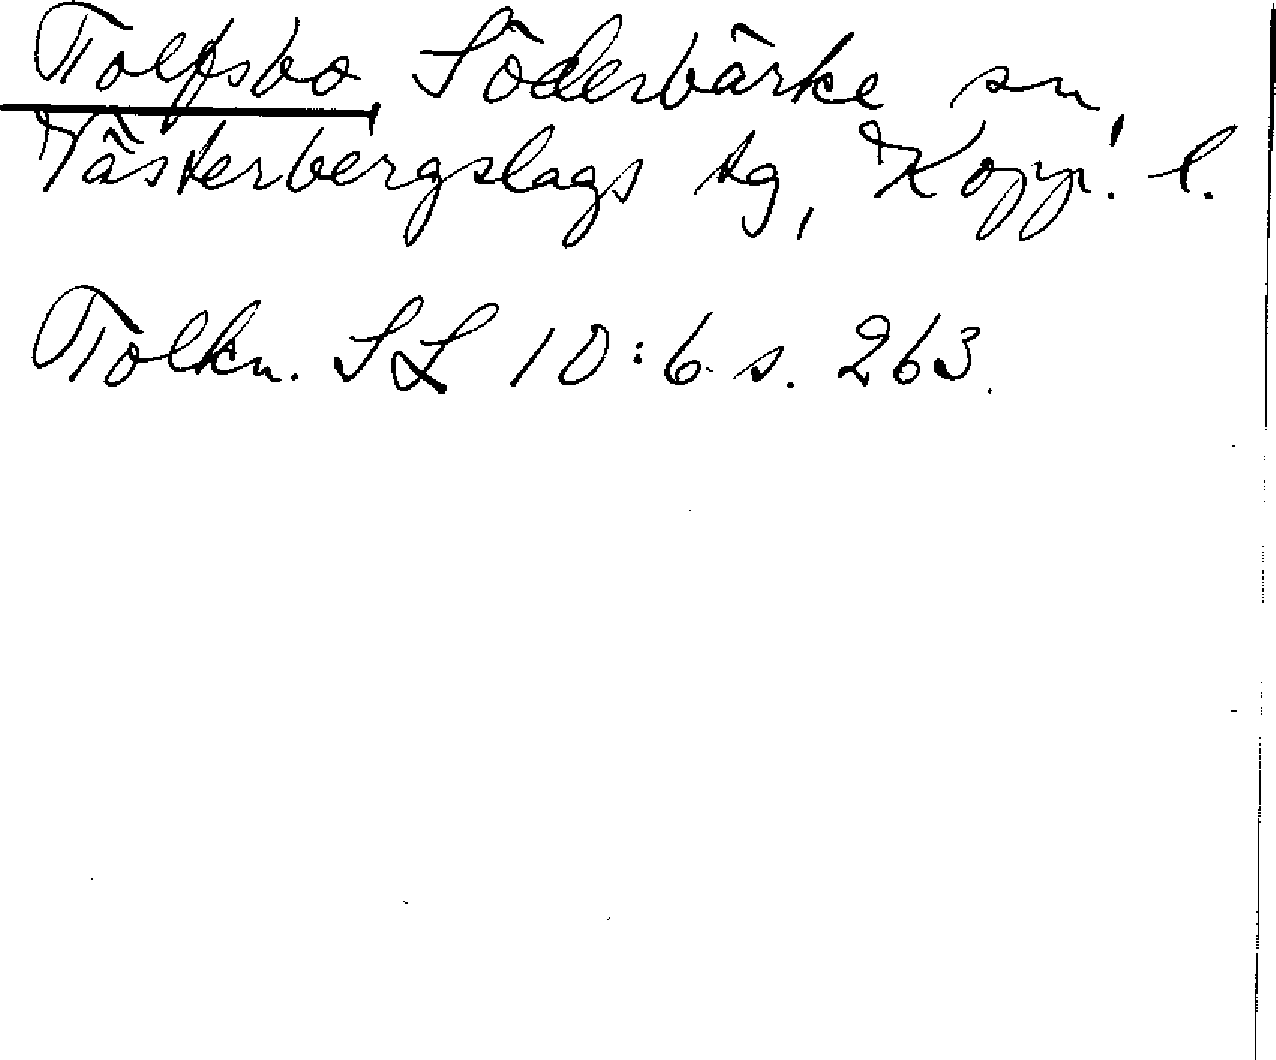 Tolfsbo, Söderbärke sn,
Västerbergslags tg, Kopp. l.
Tolkn. SL 10:6 s. 263.